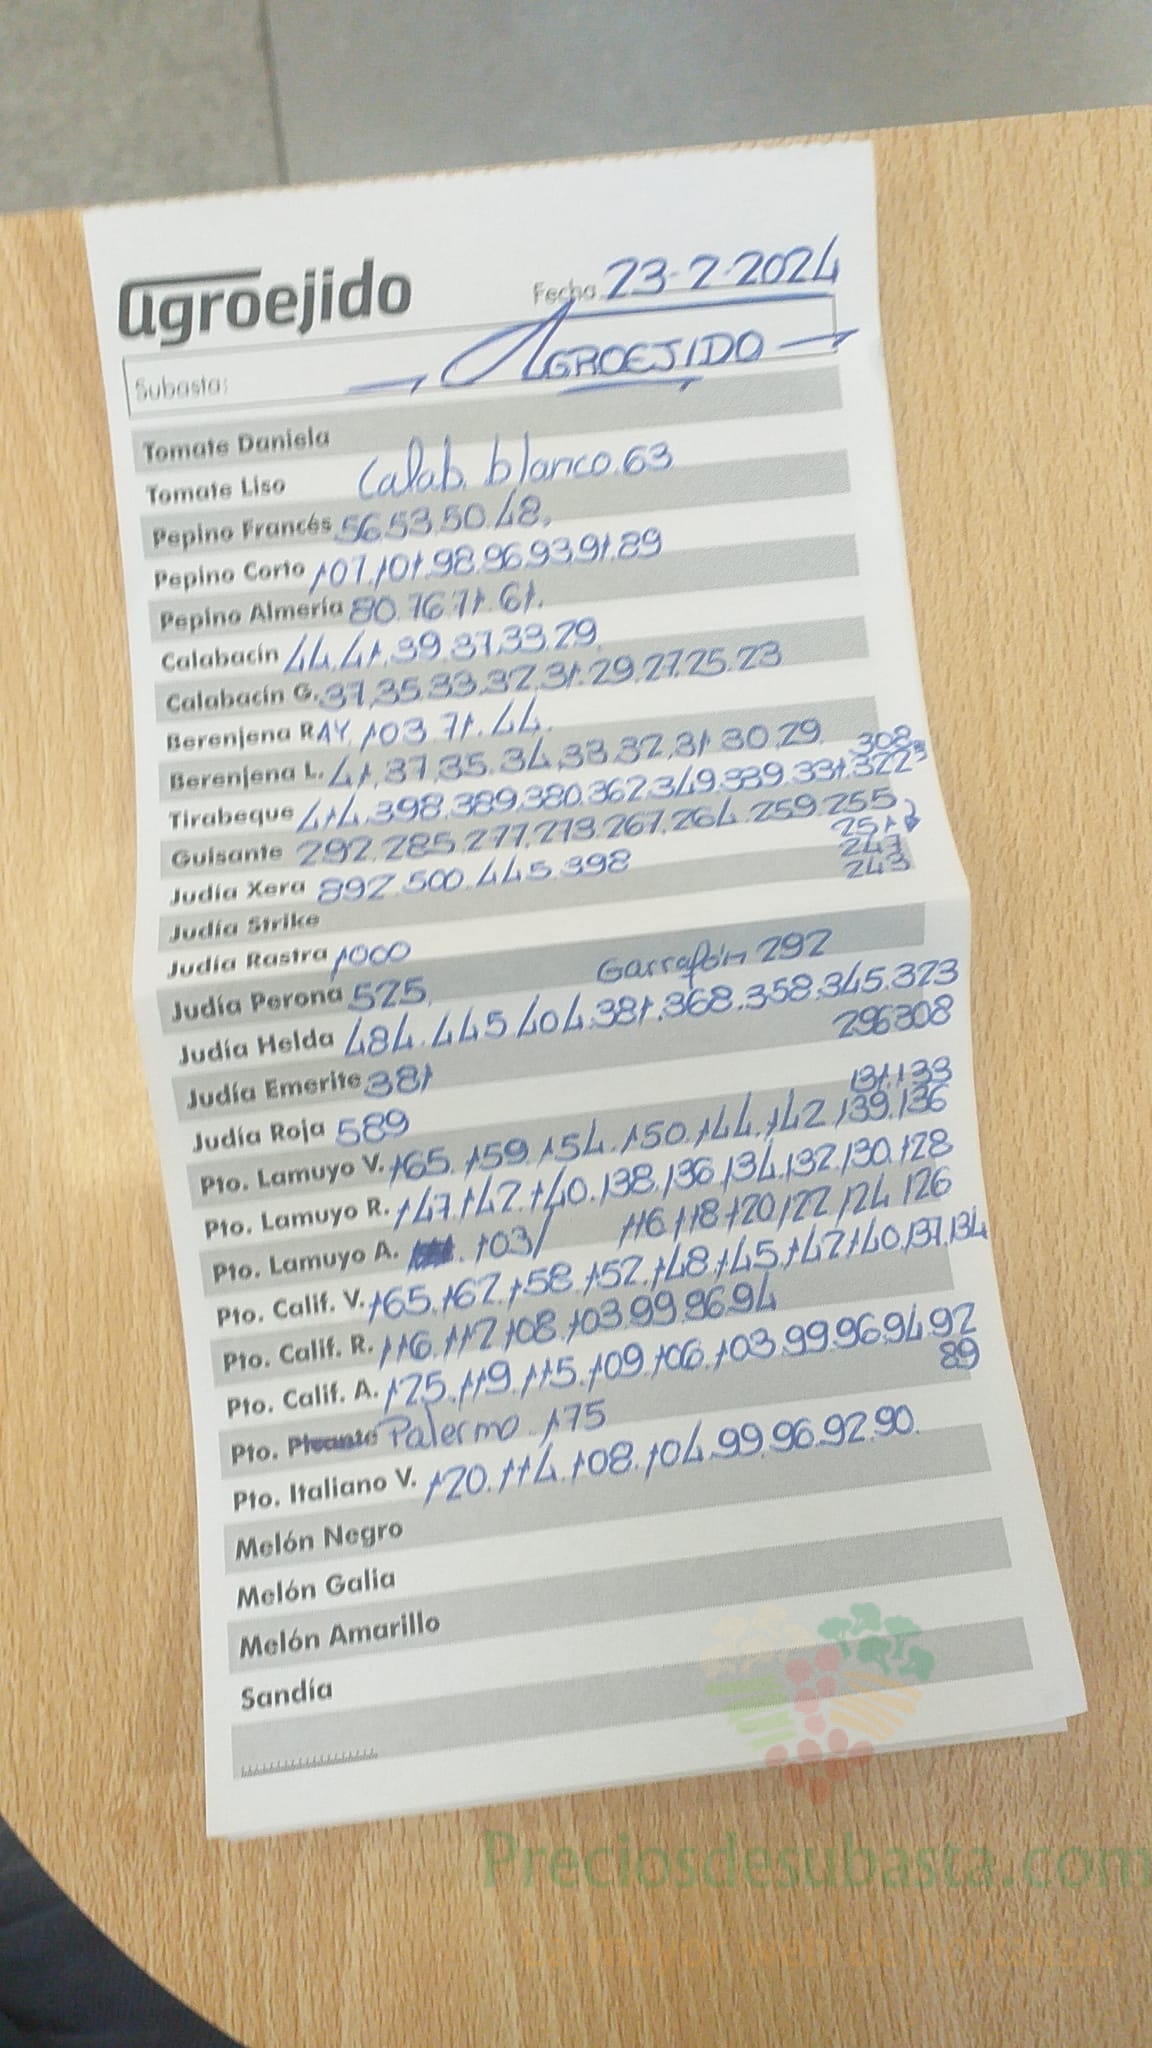 agroejido
Fecha 23-2-2024
Subasta: AGROEJIDO
Tomate Daniela
Tomate Liso Calab. blanco. 63
Pepino Francés 56.53.50.48.
Pepino Corto 107.101.98.96.93.91.89
Pepino Almería 80.76.71.61.
Calabacín 44.41.39.37.33.29.
Calabacín G. 37.35.33.32.31.29.27.25.23
Berenjena RAY. 103.71.44.
Berenjena L. 41.37.35.34.33.32.31.30.29.
308
Tirabeque 414.398.389.380.362.349.339.331.322
Guisante 292.285.277.273.267.264.259.255
251
247
Judía Xera 892.500.445.398
243
Judía Strike
Judía Rastra 1000
Garrafón 292
Judía Perona 525.
Judía Helda 484.445.404.381.368.358.345.323
296 308
Judía Emerite 381
Judía Roja 589
131.133
Pto. Lamuyo V. 165.159.154.150.144.142.139.136
Pto. Lamuyo R. 147.142.140.138.136.134.132.130.128
Pto. Lamuyo A. 103/ 116.118.120.122.124.126
Pto. Calif. V. 165.162.158.152.148.145.142.140.137.134
Pto. Calif. R. 116.112.108.103.99.96.94
Pto. Calif. A. 125.119.115.109.106.103.99.96.94.92
89
Pto. Picante Palermo 175
Pto. Italiano V. 120.114.108.104.99.96.92.90.
Melón Negro
Melón Galia
Melón Amarillo
Sandía
Preciosdesubasta.com
La mayor web de hortalizas